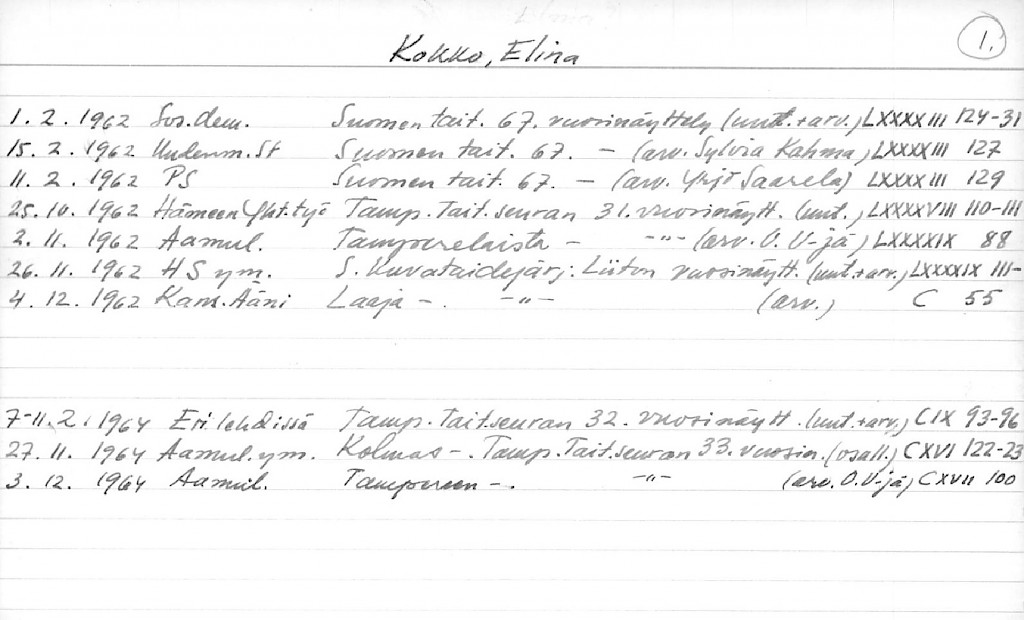 1.
Kokko, Elina
1. 2. 1962 Sos.dem. Suomen tait. 67. vuosinäyttely (uut.+arv.) LXXXXIII 124-31
15. 2. 1962 Uudenm. St Suomen tait. 67. — (arv. Sylvia Kahma) LXXXXIII 127
11. 2. 1962 PS Suomen tait. 67. — (arv. Yrjö Saarela) LXXXXIII 129
25. 10. 1962 Hämeen Yht.työ Tamp. Tait.seuran 31. vuosinäytt. (uut.) LXXXXVIII 110-111
2. 11. 1962 Aamul. Tamperelaista – -"- (arv. O. V-jä) LXXXXIX 88
26. 11. 1962 HS ym. S. Kuvataidejärj. Liiton vuosinäytt. (uut.+arv.) LXXXXIX 111-
4. 12. 1962 Kans. Ääni Laaja –. -"- (arv.) C 55
7-11. 2. 1964 Eri lehdissä Tamp. Tait.seuran 32. vuosinäytt. (uut.+arv.) CIX 93-96
27. 11. 1964 Aamul. ym. Kolmas –. Tamp. Tait.seuran 33. vuosin. (osall.) CXVI 122-23
3. 12. 1964 Aamul. Tampereen –. -"- (arv. O. V-jä) CXVII 100